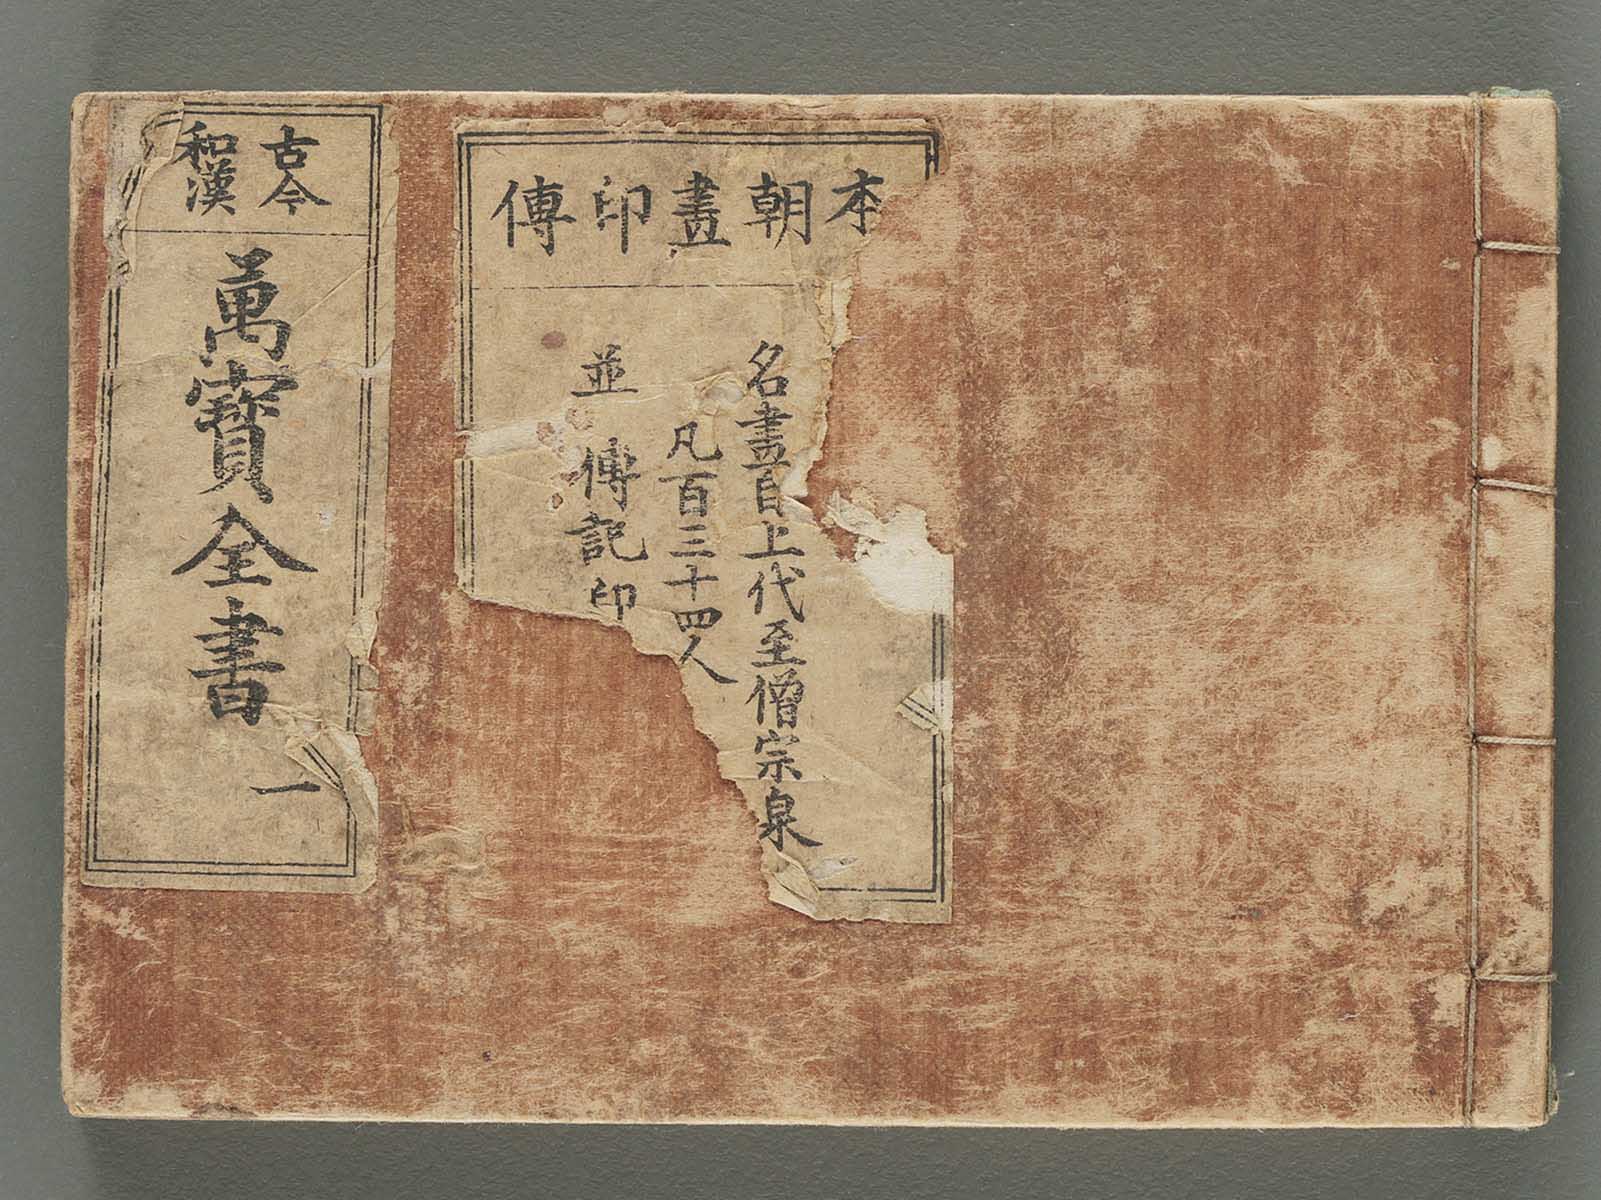 本朝畫印傳
名畫自上代至僧宗泉
凡百三十四人
並傳記印
古今
和漢
萬寶全書
一